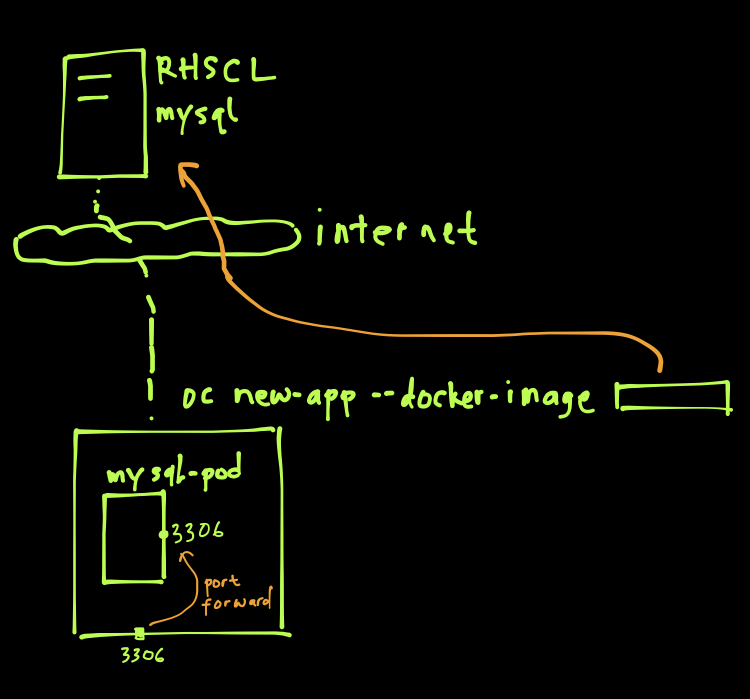 RHSCL
mysql
internet
oc new-app --docker-image
mysql-pod
3306
port
forward
3306